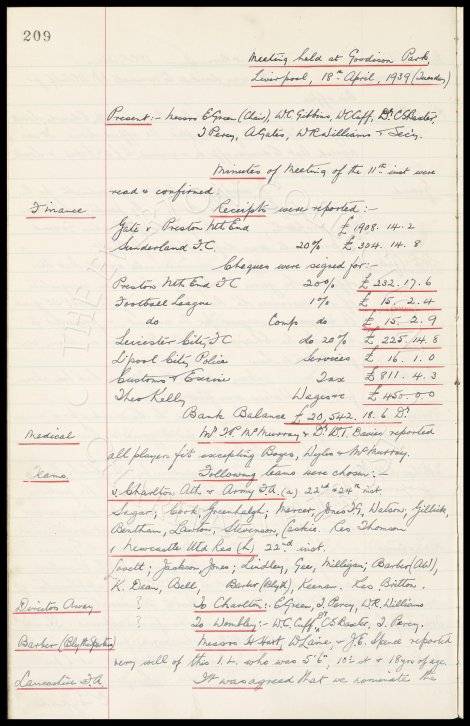 209
Meeting held at Goodison Park
Liverpool, 18th April, 1939 (Tuesday)
Present:- Messrs E Green (Chair), W.C. Gibbins, W C Cuff, Dr. C S Baxter,
T Percy, A Gates, W R Williams & Sec'y.
Minutes of Meeting of the 11th inst were
read & confirmed
Finance
Receipts were reported:-
Gate v Preston Nth End £ 1908. 14. 2
Sunderland F.C. 20% £ 304. 14. 8
Cheques were signed for:-
Preston Nth End F C 20% £ 232. 17. 6
Football League 1% £ 15. 2. 4
do Comps do £ 15. 2. 9
Leicester City F C do 20% £ 225. 14. 8
L'pool City Police Services £ 16. 1. 0
Customs & Excise Tax £ 811. 4. 3
Theo Kelly Wages &c £ 450. 0. 0
Bank Balance £ 20,542. 18. 6 Dr
Medical
McMurray & Dr. D.T. Davies reported
all players fit excepting Boyes, Wyles & McMurray.
Teams
Following teams were chosen:-
v Charlton Ath. & Army F.A. (a) 22nd & 24th inst.
Sagar; Cook, Greenhalgh; Mercer, Jones T.G, Watson; Gillick,
Bentham, Lawton, Stevenson, Caskie. Res Thomson
v Newcastle Utd Res (h) 22nd inst.
Lovett; Jackson Jones; Lindley, Gee, Milligan; Barber (AW),
K. Dean, Bell, Barber (Blyth), Keenan. Res Britton.
Directors Away
? To Charlton:- E Green, T. Percy, W.R. Williams
? To Wembley:- W C Cuff, Dr C S Baxter, T. Percy.
Barber (Blyth Spartans)
Messrs H Hart, W Laine, & J.E. Spence reported
very well of this I.L. who was 5'6", 10st & 18 yrs of age.
Lancashire F.A
It was agreed that we nominate the